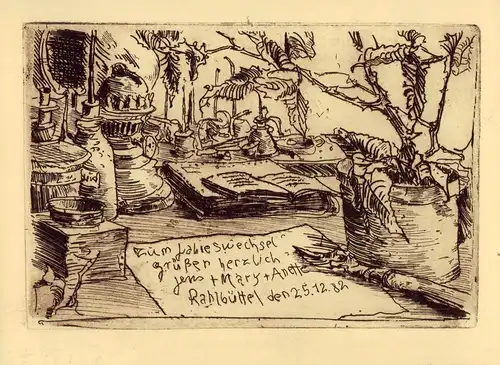 Zum Jahreswechsel
grüßen herzlich
Jens + Mary + Anette
Rahlbüttel den 25.12.82